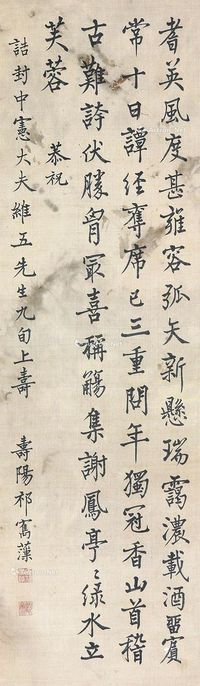 耆英風度甚雍容弧矢新懸瑞靄濃載酒畱賓
常十日譚經奪席已三重問年獨冠香山首稽
古難誇伏勝胷冣喜稱觴集謝鳳亭〻綠水立
芙蓉 恭祝
誥封中憲大夫維五先生九旬上壽 壽陽祁寯藻